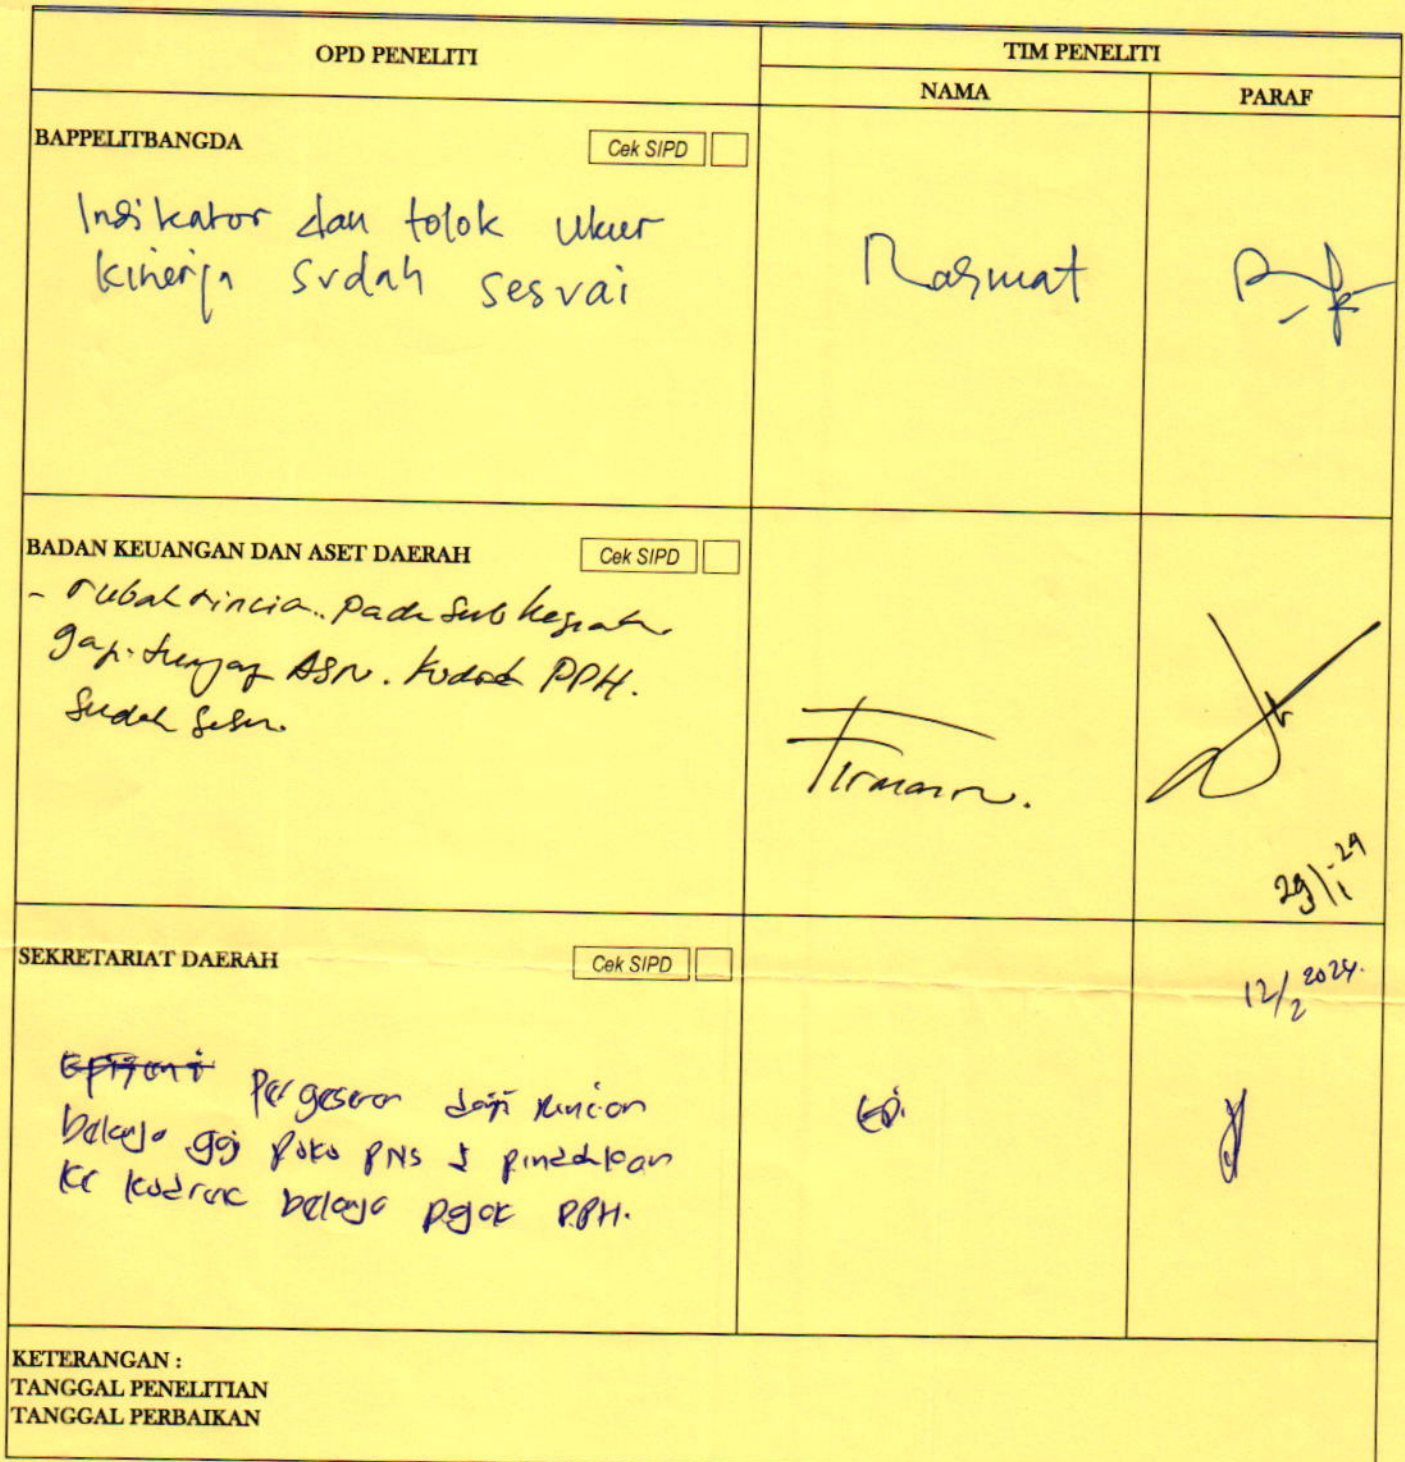 OPD PENELITI
TIM PENELITI
NAMA
PARAF
BAPPELITBANGDA
Cek SIPD
Indikator dan tolok ukur
kinerja sudah sesuai
Rasmat
BADAN KEUANGAN DAN ASET DAERAH
Cek SIPD
- rubah rincia.. pada sub kegiatan
gaji tunjang ASN. kodrek PPH.
sudah sesu.
Firman.
29/1-24
SEKRETARIAT DAERAH
Cek SIPD
12/2 2024.
Pergeseran dari rincian
belanja gaji poko PNS di pindahkan
ke kodrek belanja pajak PPH.
KETERANGAN :
TANGGAL PENELITIAN
TANGGAL PERBAIKAN